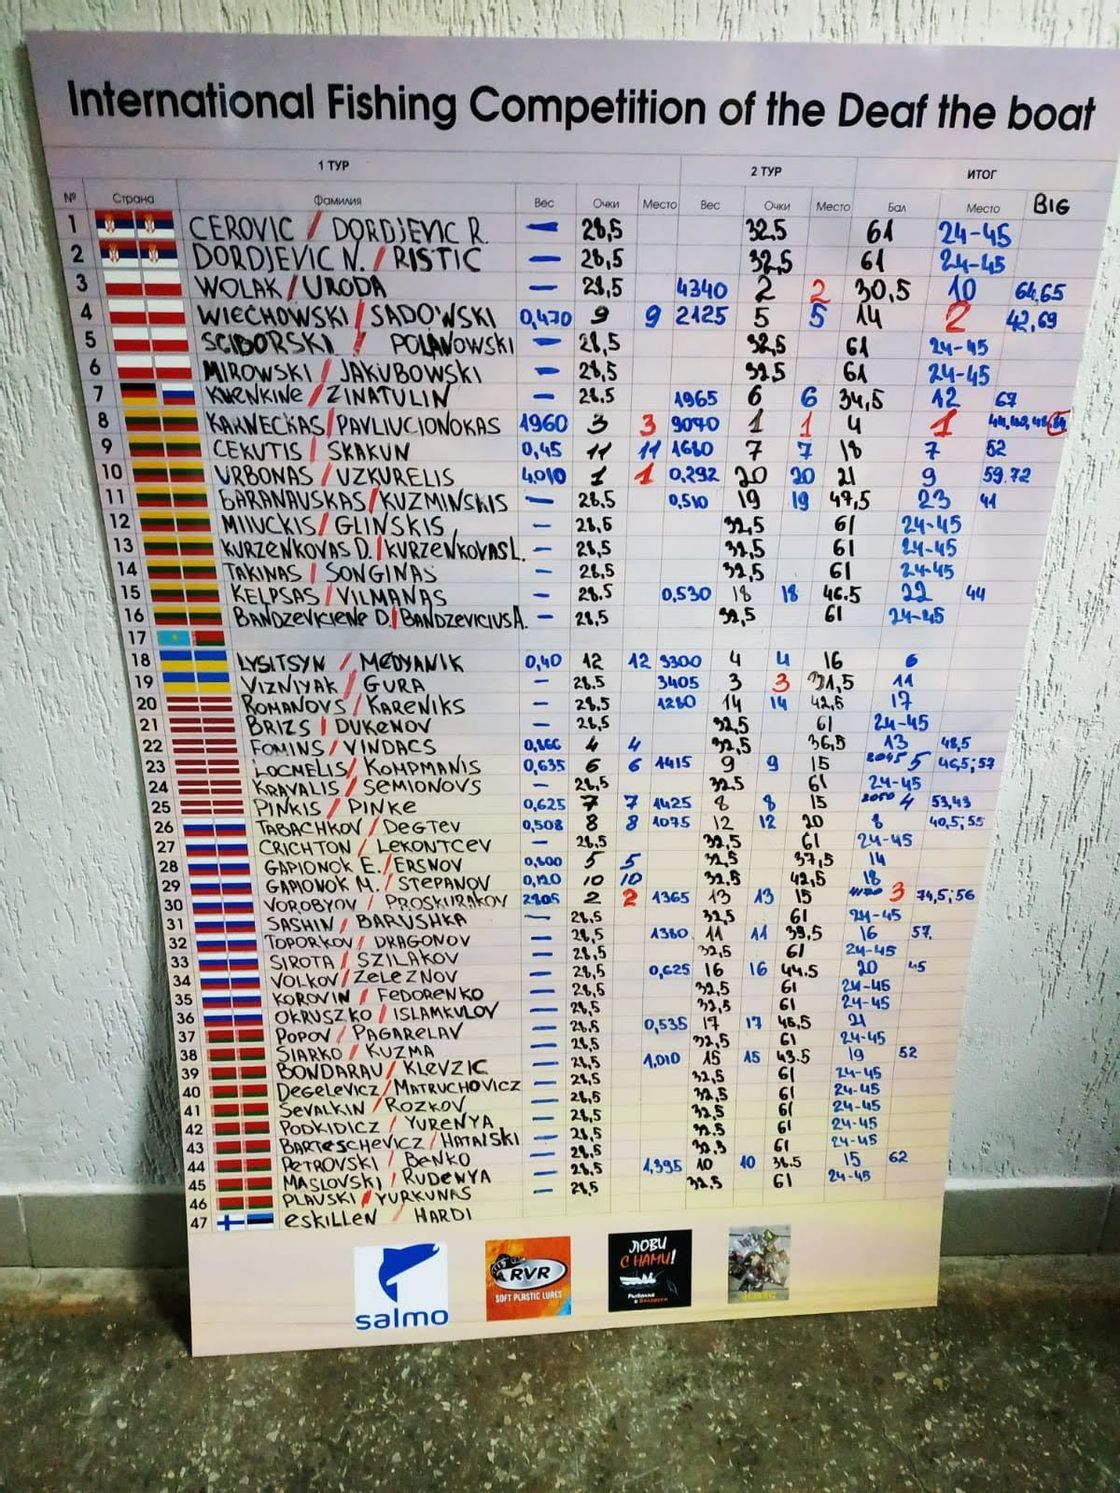 International Fishing Competition of the Deaf the boat
1 ТУР 2 ТУР ИТОГ
№ Страна Фамилия Вес Очки Место Вес Очки Место Бал Место BIG
1 CEROVIC / DORDJEVIC R. — 28,5 32,5 61 24-45
2 DORDJEVIC N. / RISTIC — 28,5 32,5 61 24-45
3 WOLAK / URODA — 28,5 4340 2 2 30,5 10 64,65
4 WIECHOWSKI / SADOWSKI 0,470 9 9 2125 5 5 14 2 42,69
5 SCIBORSKI / POLANOWSKI — 28,5 32,5 61 24-45
6 MIROWSKI / JAKUBOWSKI — 28,5 32,5 61 24-45
7 KURNKINE / ZINATULIN — 28,5 1965 6 6 34,5 12 67
8 KARNECKAS / PAVLIUCIONOKAS 1960 3 3 9070 1 1 4 1
9 CEKUTIS / SKAKUN 0,45 11 11 1680 7 7 18 7 52
10 URBONAS / UZKURELIS 4,010 1 1 0,292 20 20 21 9 59.72
11 BARANAUSKAS / KUZMINSKIS — 28,5 0,510 19 19 47,5 23 41
12 MIIUCKIS / GLINSKIS — 28,5 32,5 61 24-45
13 KURZENKOVAS D. / KURZENKOVAS L. — 28,5 32,5 61 24-45
14 TAKINAS / SONGINAS — 28,5 32,5 61 24-45
15 KELPSAS / VILMANAS — 28,5 0,530 18 18 46.5 22 44
16 BANDZEVICIENE D. / BANDZEVICIUS A. — 28,5 32,5 61 24-45
17
18 LYSITSYN / MEDYANIK 0,40 12 12 3300 4 4 16 6
19 VIZNIYAK / GURA — 28.5 3405 3 3 31,5 11
20 ROMANOVS / KARENIKS — 28,5 1280 14 14 42,5 17
21 BRIZS / DUKENOV — 28,5 32,5 61 24-45
22 FOMINS / VINDACS 0,866 4 4 32,5 36,5 13 48,5
23 LOCMELIS / KOMPMANIS 0,635 6 6 1415 9 9 15 5 46,5; 57
24 KRAVALIS / SEMIONOVS — 28,5 32,5 61 24-45
25 PINKIS / PINKE 0,625 7 7 1425 8 8 15 2050 4 53,43
26 TABACHKOV / DEGTEV 0,508 8 8 1075 12 12 20 8 40,5; 55
27 CRICHTON / LEKONTCEV — 28,5 32,5 61 24-45
28 GAPIONOK E. / ERSNOV 0,800 5 5 32,5 37,5 14
29 GAPIONOK M. / STEPANOV 0,120 10 10 32,5 42,5 18
30 VOROBYOV / PROSKURAKOV 2805 2 2 1365 13 13 15 3 74,5; 56
31 SASHIN / BARUSHKA — 28,5 32,5 61 24-45
32 TOPORKOV / DRAGONOV — 28,5 1380 11 11 39,5 16 57.
33 SIROTA / SZILAKOV — 28,5 32,5 61 24-45
34 VOLKOV / ZELEZNOV — 28,5 0,625 16 16 44.5 20 45
35 KOROVIN / FEDORENKO — 28,5 32,5 61 24-45
36 OKRUSZKO / ISLAMKULOV — 28,5 32,5 61 24-45
37 POPOV / PAGARELAV — 28,5 0,535 17 17 45,5 21
38 SIARKO / KUZMA — 28,5 32,5 61 24-45
39 BONDARAU / KLEVZIC — 28,5 1,010 15 15 43.5 19 52
40 DEGELEVICZ / MATRUCHOVICZ — 28,5 32,5 61 24-45
41 SEVALKIN / ROZKOV — 28,5 32,5 61 24-45
42 PODKIDICZ / YURENYA — 28,5 32,5 61 24-45
43 BARTESCHEVICZ / HATALSKI — 28,5 32.5 61 24-45
44 PETROVSKI / BENKO — 28,5 32,5 61 24-45
45 MASLOVSKI / RUDENYA — 28,5 1,395 10 10 38.5 15 62
46 PLAVSKI / YURKUNAS — 28,5 32,5 61 24-45
47 ESKILLEN / HARDI
salmo
RVR
SOFT PLASTIC LURES
ЛОВИ
С НАМИ!
Рыбалка
в Беларуси